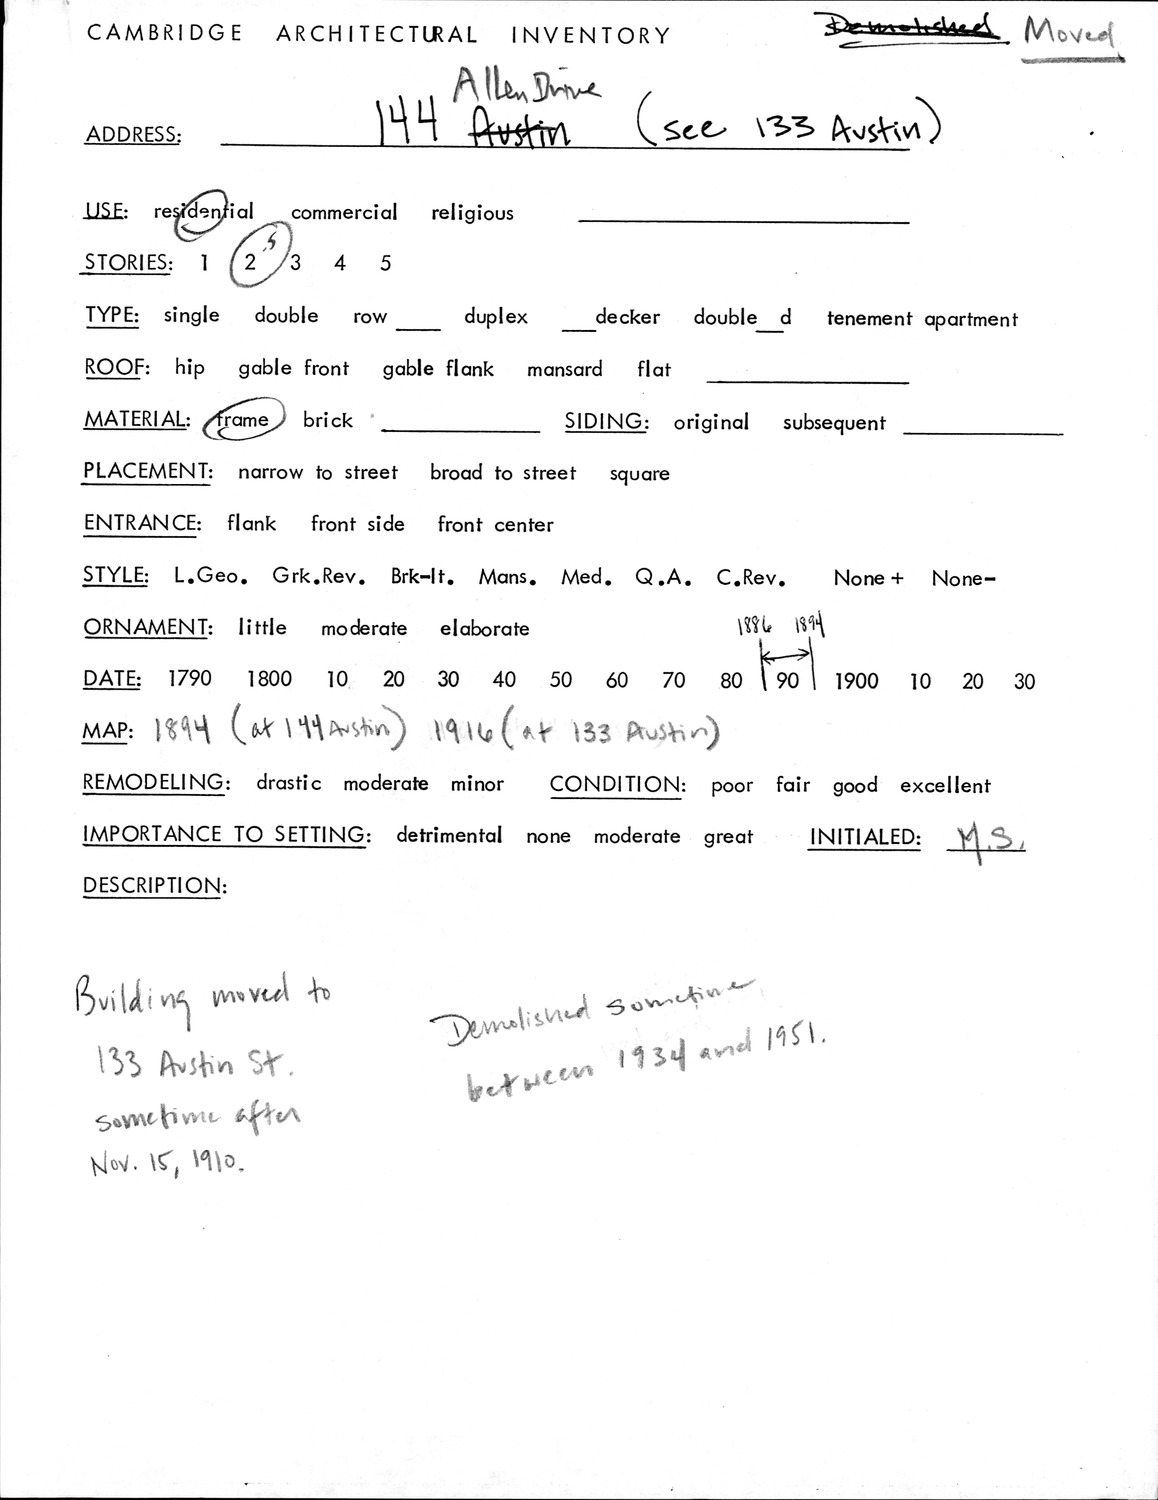 CAMBRIDGE ARCHITECTURAL INVENTORY Demolished Moved
Allen Drive
ADDRESS: 144 Austin (see 133 Austin)
USE: residential commercial religious
STORIES: 1 2 .5 3 4 5
TYPE: single double row ___ duplex ___decker double__d tenement apartment
ROOF: hip gable front gable flank mansard flat
MATERIAL: frame brick SIDING: original subsequent
PLACEMENT: narrow to street broad to street square
ENTRANCE: flank front side front center
STYLE: L.Geo. Grk.Rev. Brk-It. Mans. Med. Q.A. C.Rev. None+ None-
ORNAMENT: little moderate elaborate 1886 1894
DATE: 1790 1800 10 20 30 40 50 60 70 80 90 1900 10 20 30
MAP: 1894 (at 144 Austin) 1916 (at 133 Austin)
REMODELING: drastic moderate minor CONDITION: poor fair good excellent
IMPORTANCE TO SETTING: detrimental none moderate great INITIALED: M.S.
DESCRIPTION:
Building moved to
133 Austin St.
sometime after
Nov. 15, 1910.
Demolished sometime
between 1934 and 1951.